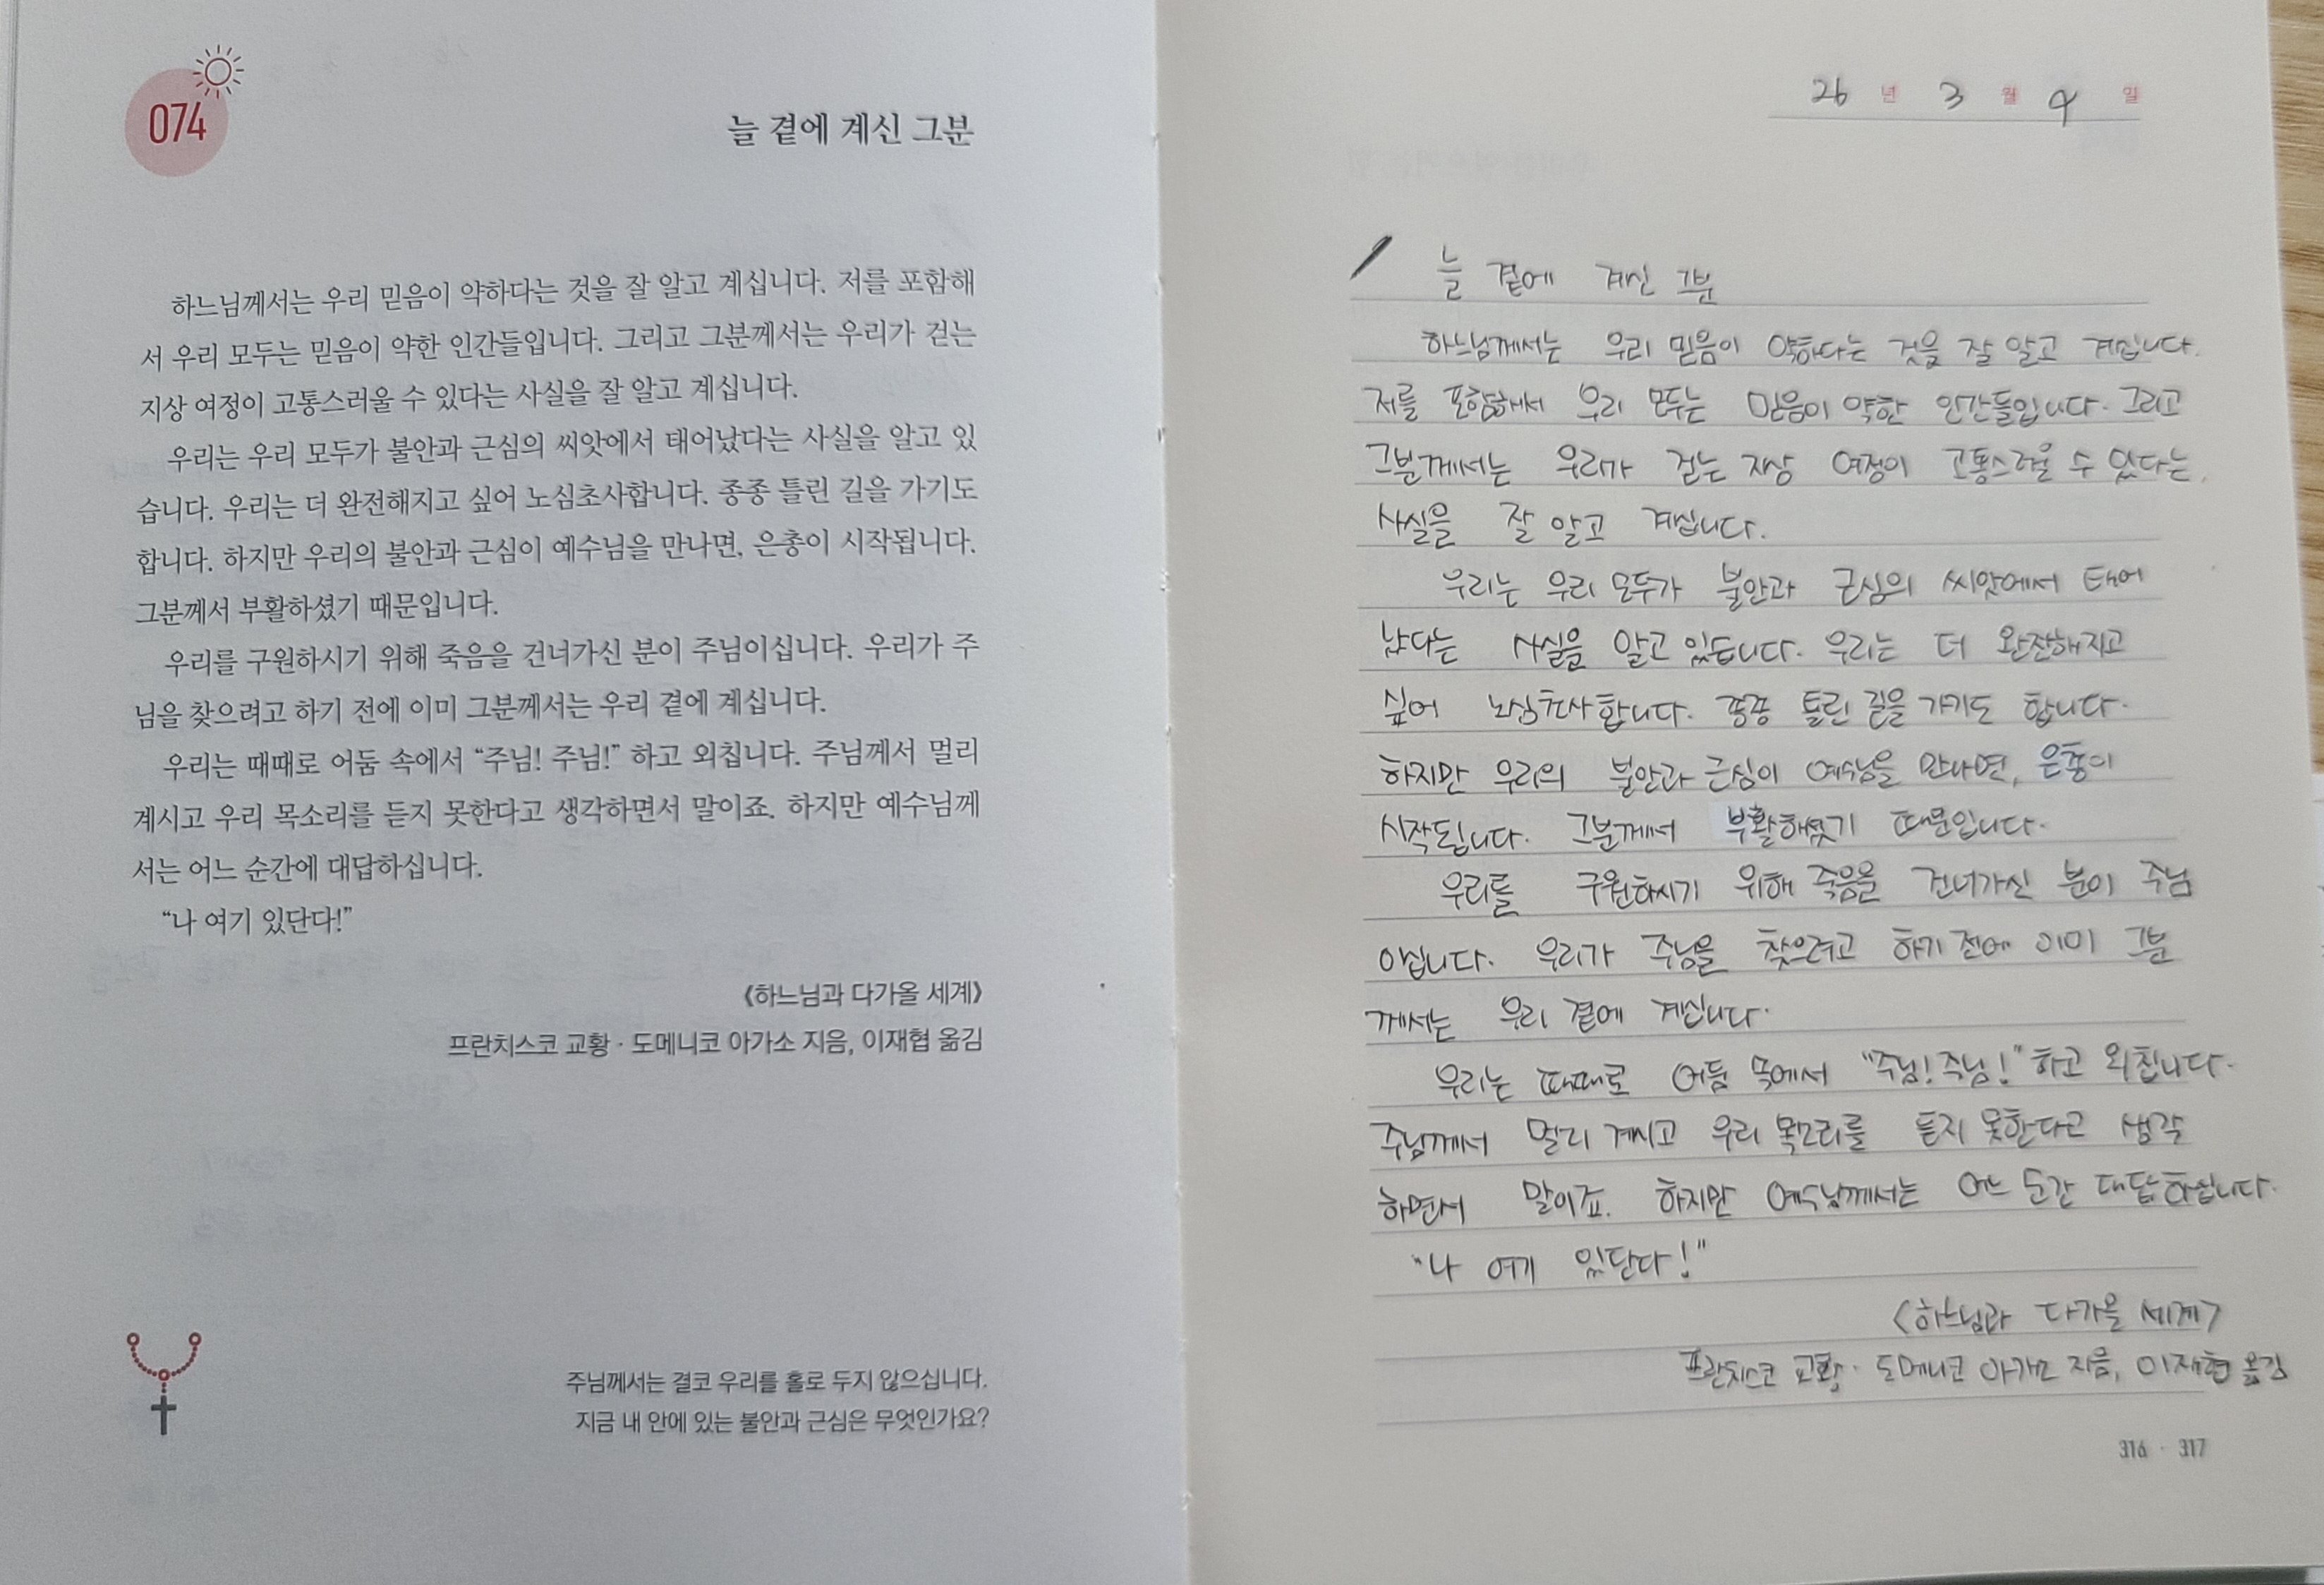 074
늘 곁에 계신 그분
하느님께서는 우리 믿음이 약하다는 것을 잘 알고 계십니다. 저를 포함해
서 우리 모두는 믿음이 약한 인간들입니다. 그리고 그분께서는 우리가 걷는
지상 여정이 고통스러울 수 있다는 사실을 잘 알고 계십니다.
우리는 우리 모두가 불안과 근심의 씨앗에서 태어났다는 사실을 알고 있
습니다. 우리는 더 완전해지고 싶어 노심초사합니다. 종종 틀린 길을 가기도
합니다. 하지만 우리의 불안과 근심이 예수님을 만나면, 은총이 시작됩니다.
그분께서 부활하셨기 때문입니다.
우리를 구원하시기 위해 죽음을 건너가신 분이 주님이십니다. 우리가 주
님을 찾으려고 하기 전에 이미 그분께서는 우리 곁에 계십니다.
우리는 때때로 어둠 속에서 “주님! 주님!” 하고 외칩니다. 주님께서 멀리
계시고 우리 목소리를 듣지 못한다고 생각하면서 말이죠. 하지만 예수님께
서는 어느 순간에 대답하십니다.
“나 여기 있단다!”
《하느님과 다가올 세계》
프란치스코 교황 · 도메니코 아가소 지음, 이재협 옮김
주님께서는 결코 우리를 홀로 두지 않으십니다.
지금 내 안에 있는 불안과 근심은 무엇인가요?
26 년 3 월 9 일
늘 곁에 계신 그분
하느님께서는 우리 믿음이 약하다는 것을 잘 알고 계십니다.
저를 포함해서 우리 모두는 믿음이 약한 인간들입니다. 그리고
그분께서는 우리가 걷는 지상 여정이 고통스러울 수 있다는
사실을 잘 알고 계십니다.
우리는 우리 모두가 불안과 근심의 씨앗에서 태어
났다는 사실을 알고 있습니다. 우리는 더 완전해지고
싶어 노심초사합니다. 종종 틀린 길을 가기도 합니다.
하지만 우리의 불안과 근심이 예수님을 만나면, 은총이
시작됩니다. 그분께서 부활하셨기 때문입니다.
우리를 구원하시기 위해 죽음을 건너가신 분이 주님
이십니다. 우리가 주님을 찾으려고 하기 전에 이미 그분
께서는 우리 곁에 계십니다.
우리는 때때로 어둠 속에서 "주님! 주님!" 하고 외칩니다.
주님께서 멀리 계시고 우리 목소리를 듣지 못한다고 생각
하면서 말이죠. 하지만 예수님께서는 어느 순간 대답하십니다.
"나 여기 있단다!"
<하느님과 다가올 세계>
프란치스코 교황 · 도메니코 아가소 지음, 이재협 옮김
316 · 317